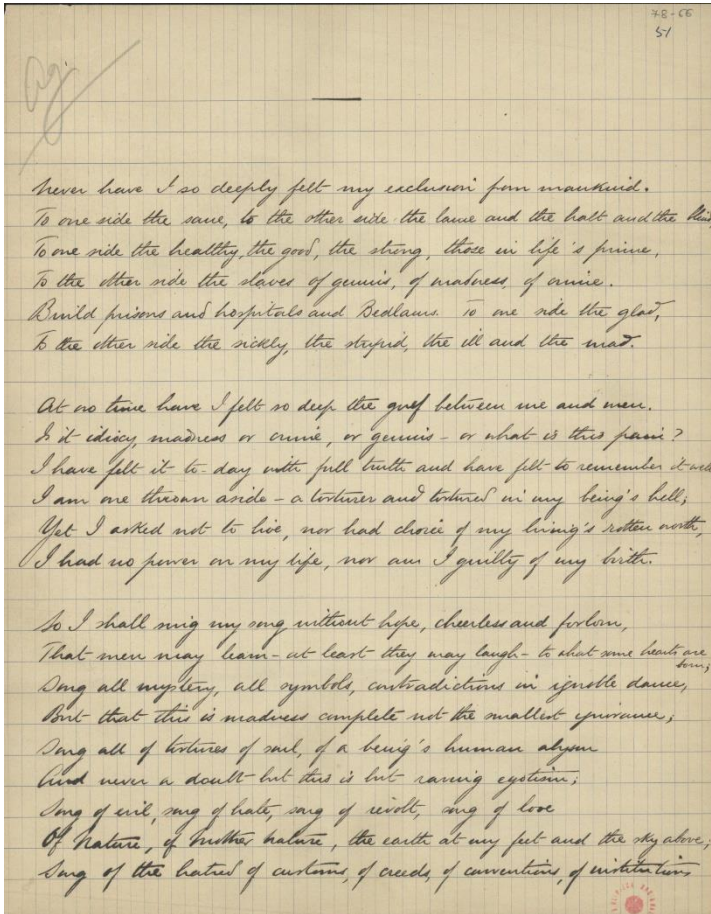 78-66
51
Ag.
Never have I so deeply felt my exclusion from mankind.
To one side the sane, to the other side the lame and the halt and the blind,
To one side the healthy, the good, the strong, those in life's prime,
To the other side the slaves of genius, of madness, of crime.
Build prisons and hospitals and Bedlams. To one side the glad,
To the other side the sickly, the stupid, the ill and the mad.
At no time have I felt so deep the gulf between me and men.
Is it idiocy, madness or crime, or genius – or what is this pain?
I have felt it to-day with full truth and have felt to remember it well
I am one thrown aside – a torturer and tortured in my being's hell;
Yet I asked not to live, nor had choice of my living's rotten worth,
I had no power on my life, nor am I guilty of my birth.
So I shall sing my song without hope, cheerless and forlorn,
That men may learn – at least they may laugh – to what some hearts are
born;
Song all mystery, all symbols, contradictions in ignoble dance,
But that this is madness complete not the smallest ignorance;
Song all of tortures of soul, of a being's human abysm
And never a doubt but this is but raving egotism;
Song of evil, song of hate, song of revolt, song of love
Of Nature, of mother nature, the earth at my feet and the sky above;
Song of the hatred of customs, of creeds, of conventions, of institutions